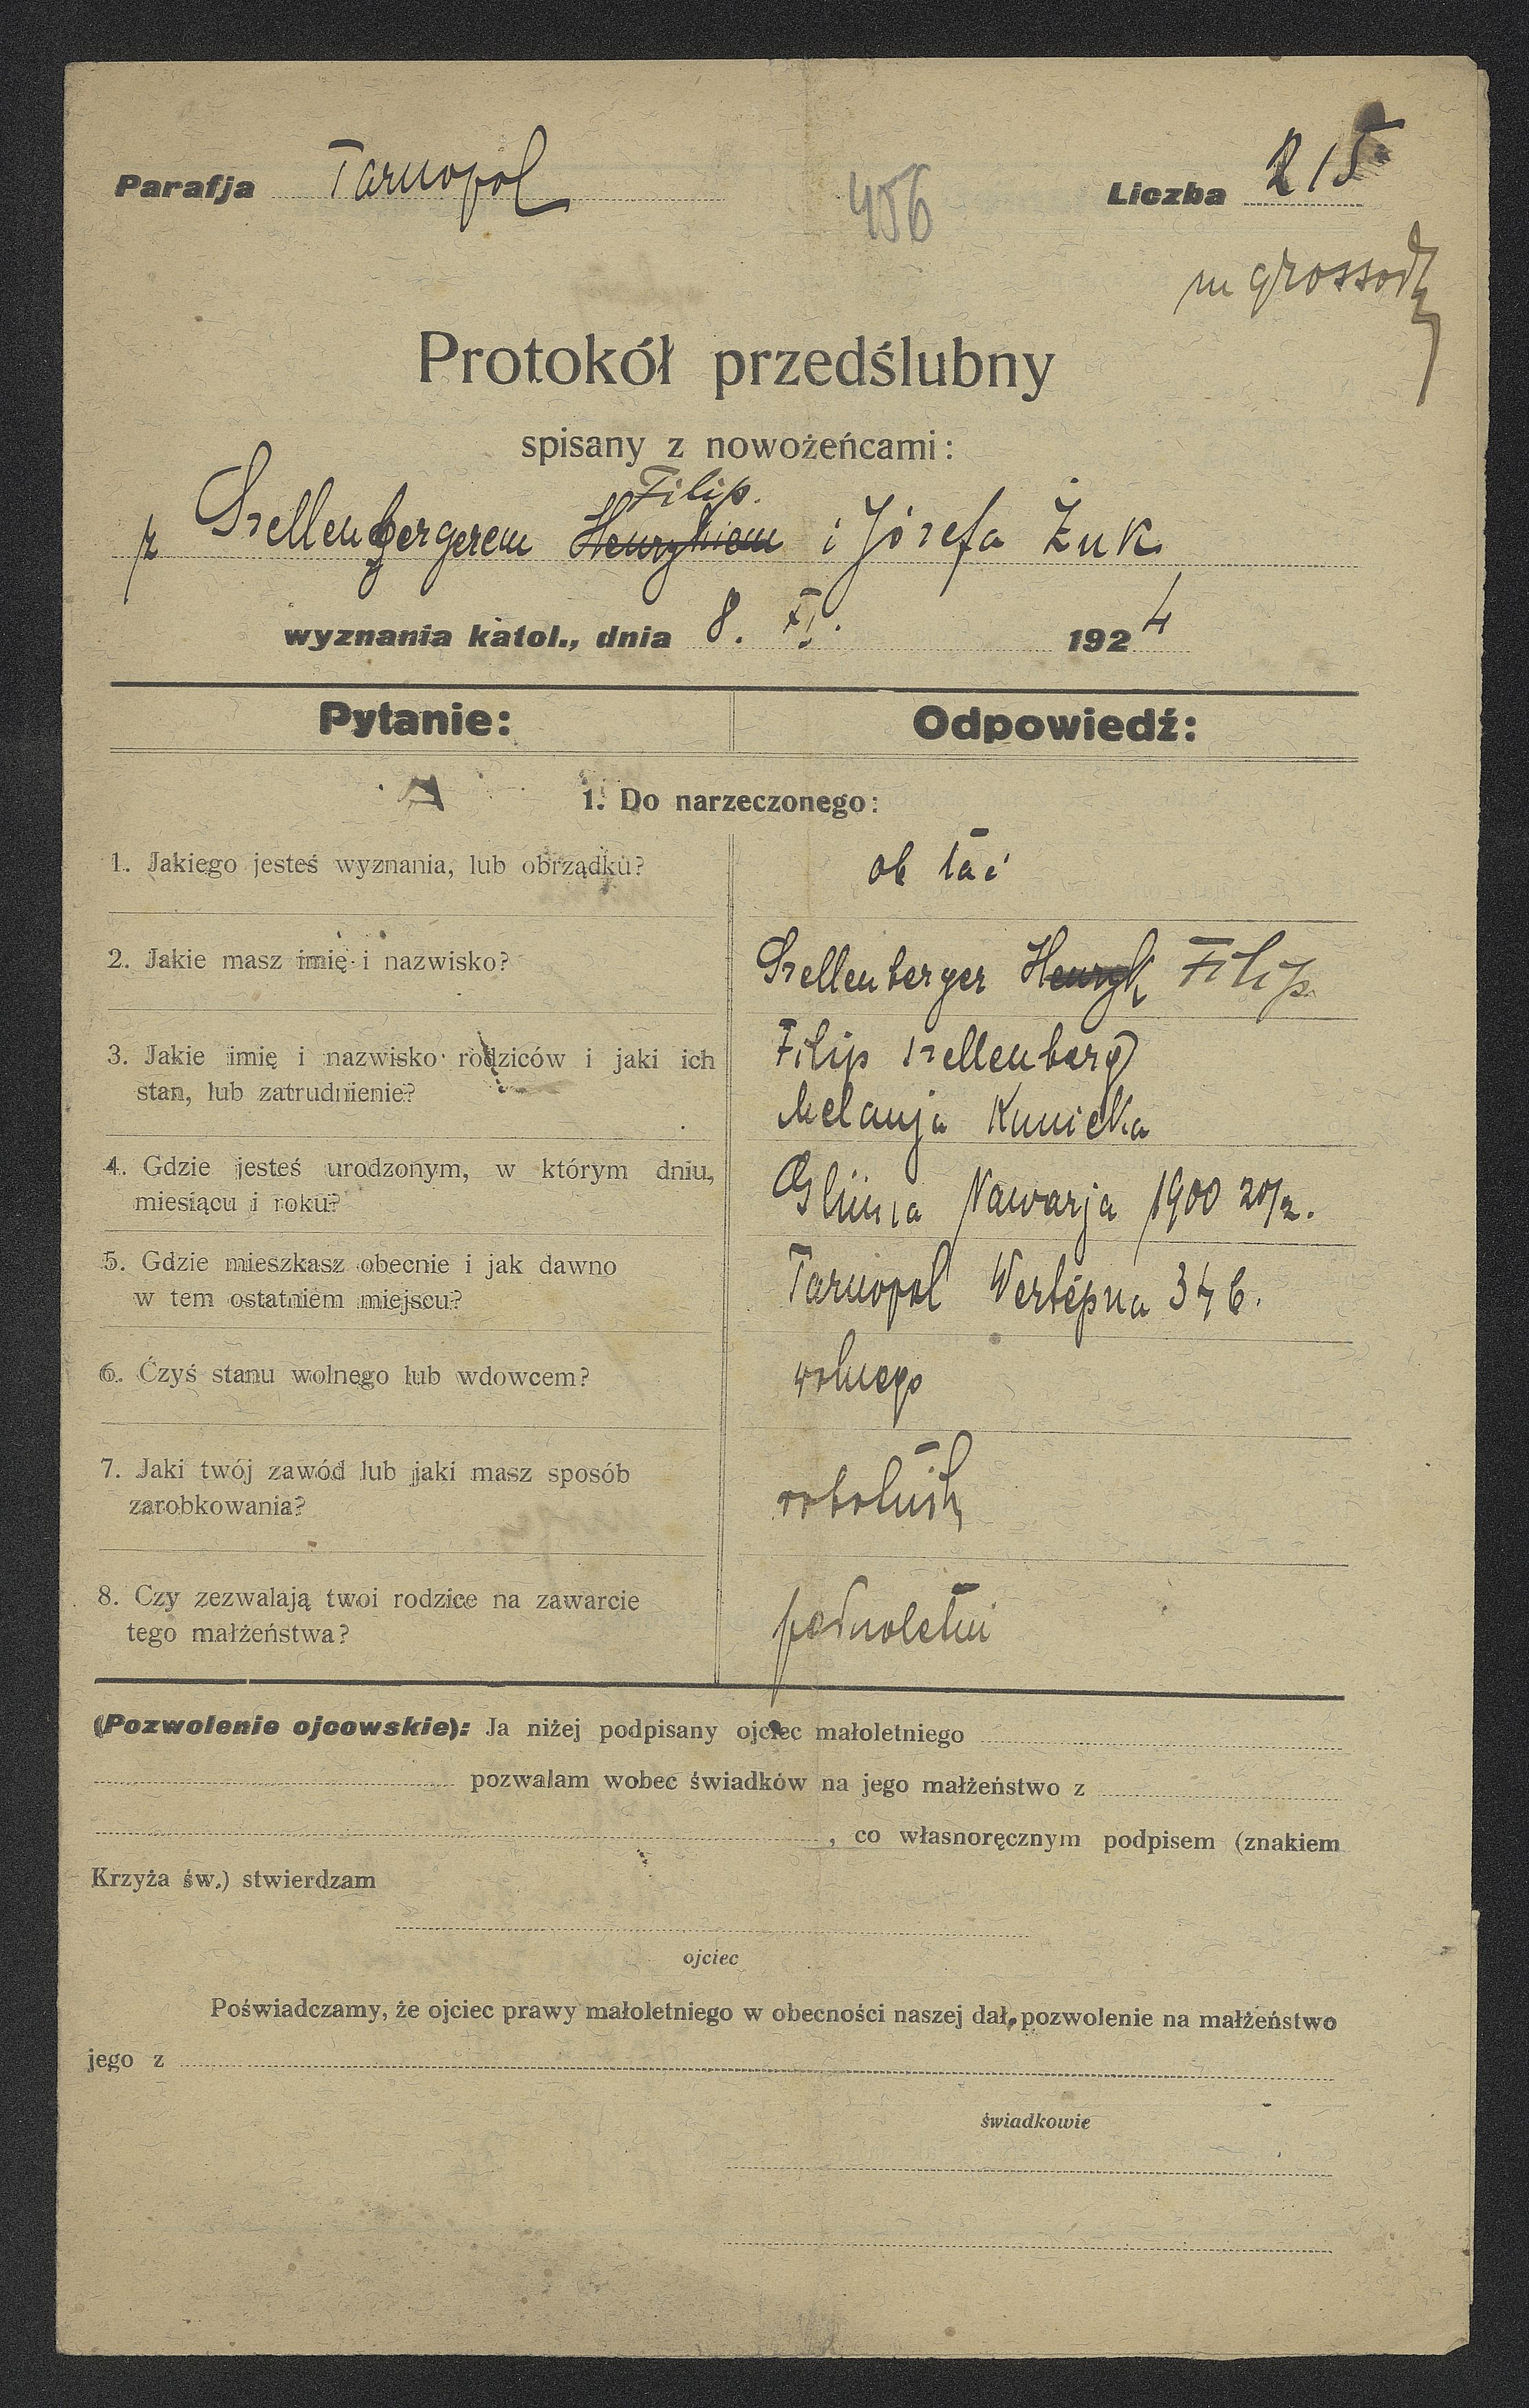 Parafja Tarnopol 456 Liczba 215
in grosso
Protokół przedślubny
spisany z nowożeńcami:
Filip.
p Szellenbergerem Henrykiem i Józefa Żuk
wyznania katol., dnia 8. XI. 1924
Pytanie: Odpowiedź:
1. Do narzeczonego:
1. Jakiego jesteś wyznania, lub obrządku? ob łać
2. Jakie masz imię i nazwisko? Szellenberger Henryk Filip.
3. Jakie imię i nazwisko rodziców i jaki ich Filip Szellenberg
stan, lub zatrudnienie? Melanja Kunicka
4. Gdzie jesteś urodzonym, w którym dniu,
miesiącu i roku? Glinna Nawarja 1900 20/2.
5. Gdzie mieszkasz obecnie i jak dawno
w tem ostatniem miejscu? Tarnopol Wertepna 346.
6. Czyś stanu wolnego lub wdowcem? wolnego
7. Jaki twój zawód lub jaki masz sposób
zarobkowania? robotnik
8. Czy zezwalają twoi rodzice na zawarcie
tego małżeństwa? pełnoletni
(Pozwolenie ojcowskie): Ja niżej podpisany ojciec małoletniego
pozwalam wobec świadków na jego małżeństwo z
, co własnoręcznym podpisem (znakiem
Krzyża św.) stwierdzam
ojciec
Poświadczamy, że ojciec prawy małoletniego w obecności naszej dał pozwolenie na małżeństwo
jego z
świadkowie